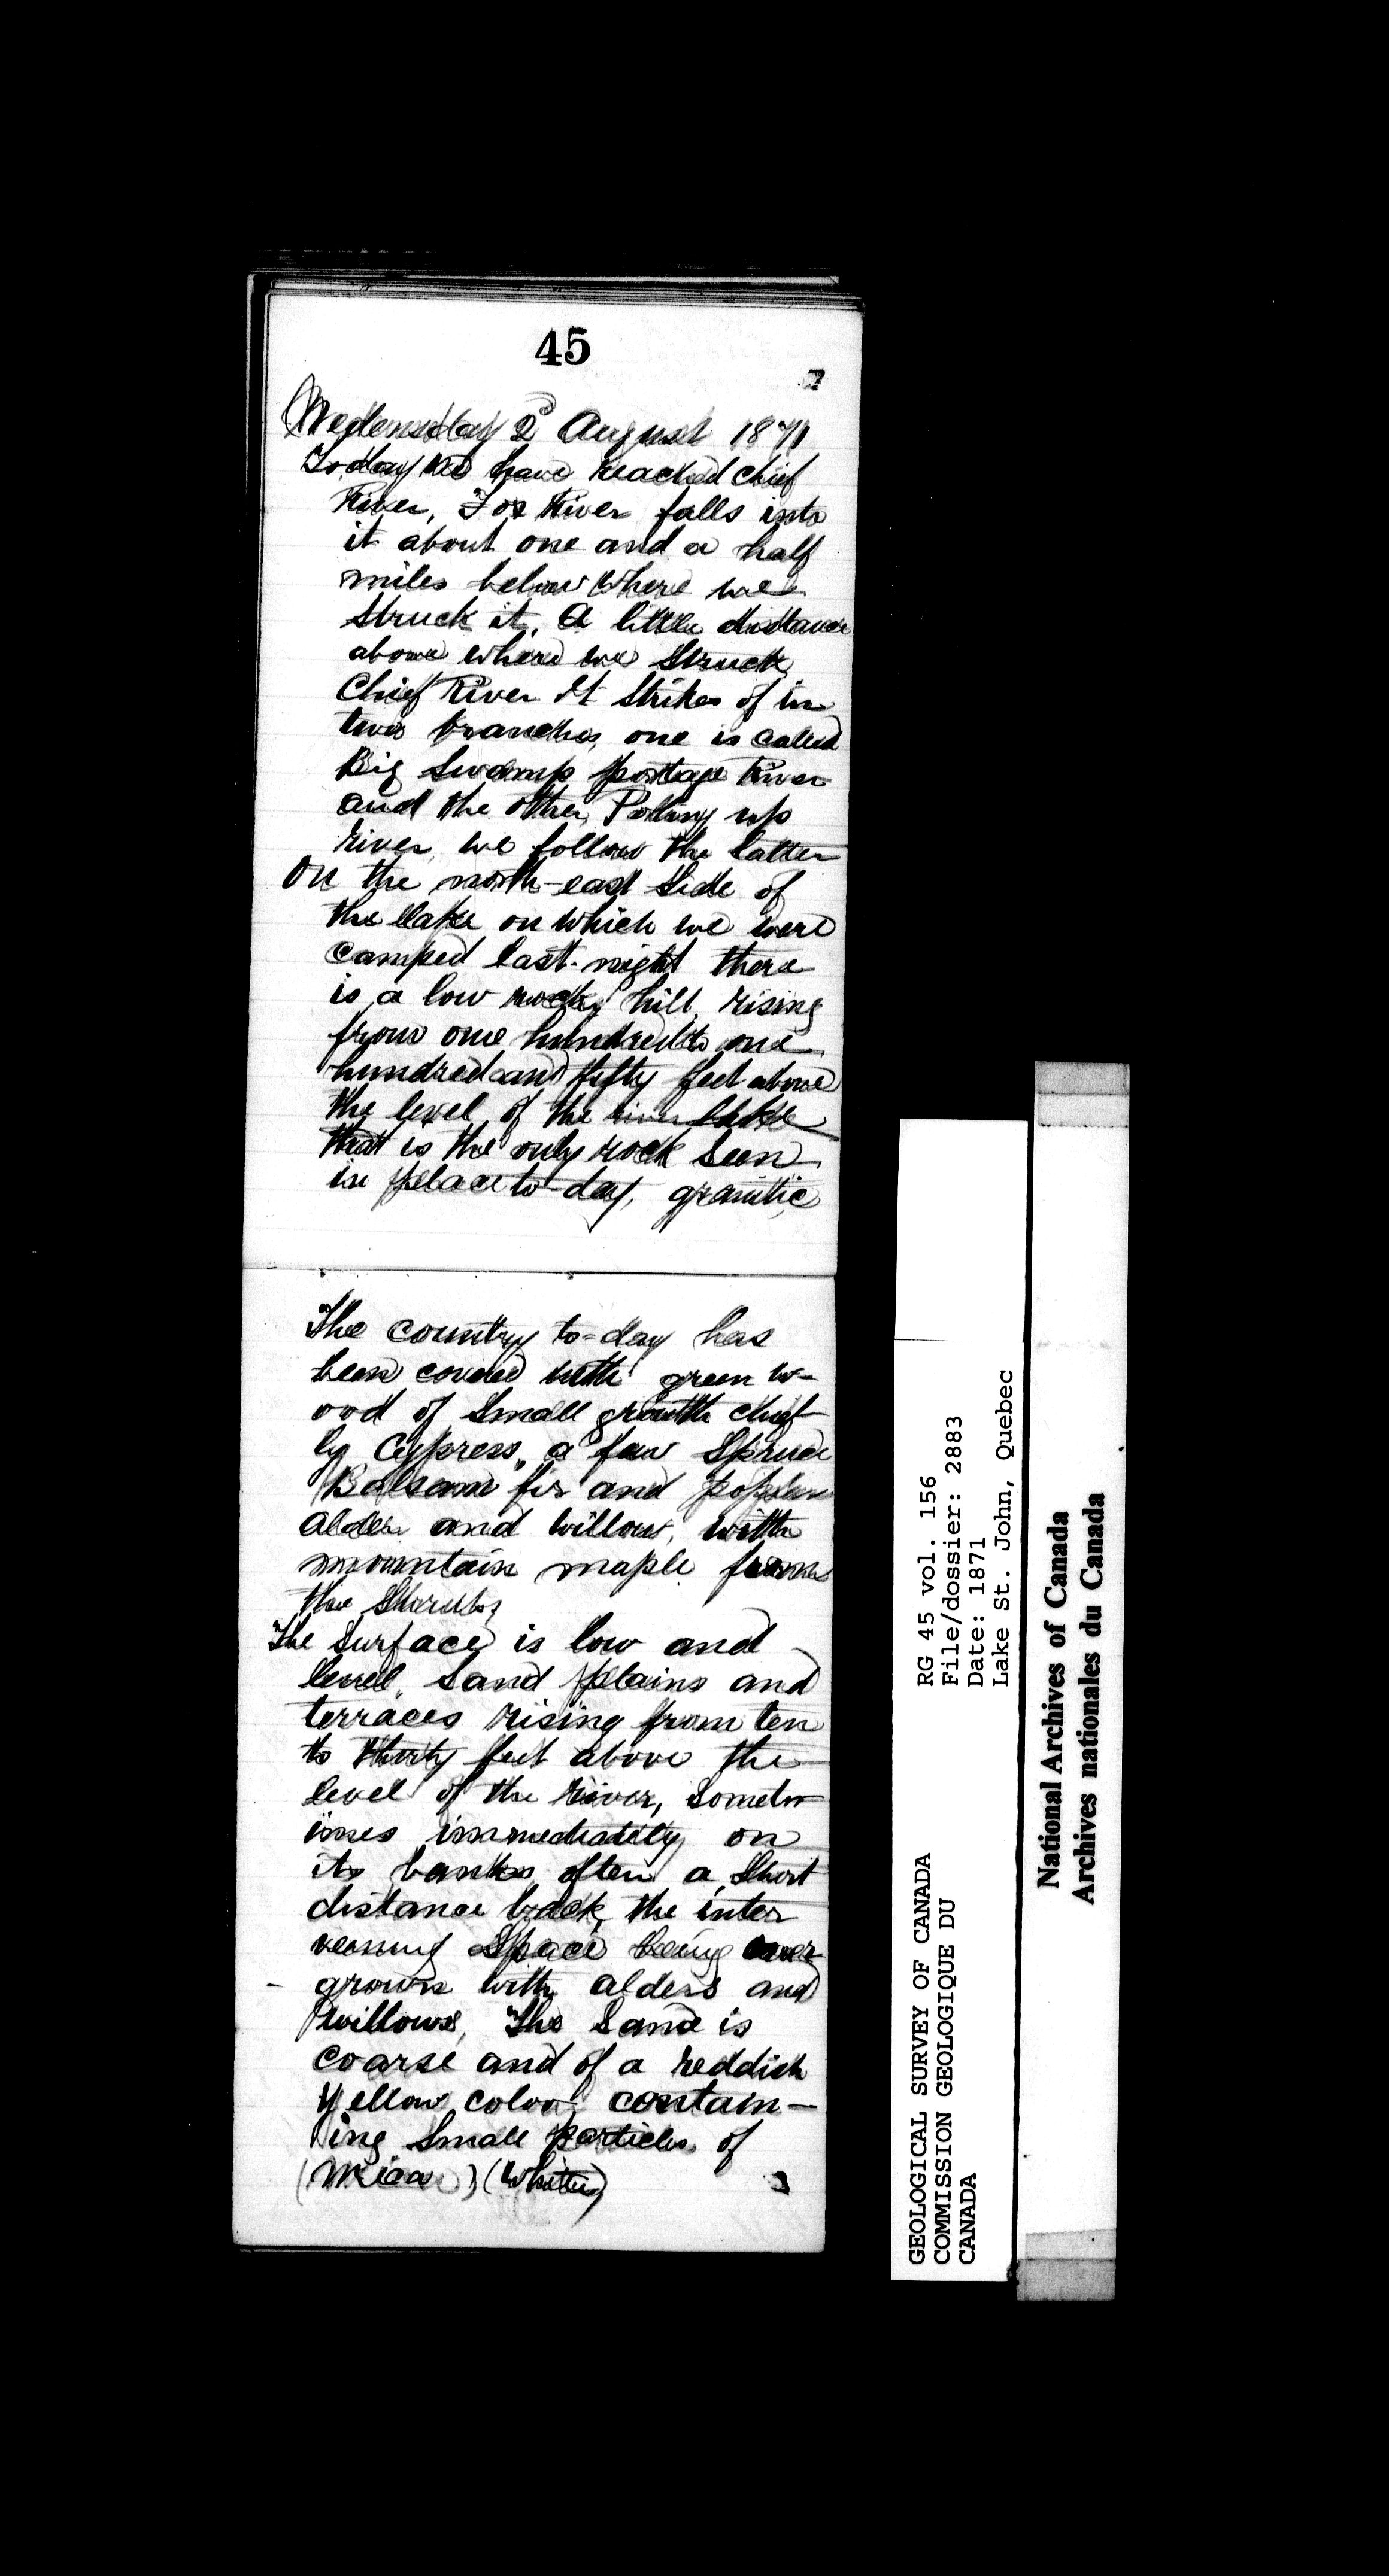 45
Wednesday 2d August 1871
To,day we have reached Chief
River, Fox River falls into
it about one and a half
miles below where we
struck it. A little distance
above where we struck
Chief River it strikes of in
two branches, one is called
Big Swamp portage River
and the other, Polling up
river, we follow the latter
On the north-east side of
the lake on which we were
camped last-night there
is a low rocky hill, rising
from one hundred to one
hundred and fifty feet above
the level of the river lake
that is the only rock seen
in place to-day, granitic
The country to-day has
been covered with green wo-
ood of small growth chief
ly Cypress, a few Spruce
Balsam fir and poplar
alder and willow, with
mountain maple forms
the shrubs,
The surface is low and
level, sand plains and
terraces rising from ten
to thirty feet above the
level of the river, somet-
imes immediately on
its banks, often a short
distance back, the inter
vening space being over
grown with alders and
willows, The sand is
coarse and of a reddish
yellow color, contain-
ing small particles of
(Mica) (White)
GEOLOGICAL SURVEY OF CANADA
COMMISSION GEOLOGIQUE DU
CANADA
RG 45 vol. 156
File/dossier: 2883
Date: 1871
Lake St. John, Quebec
National Archives of Canada
Archives nationales du Canada